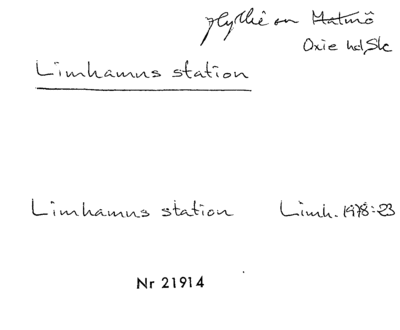 Hyllie sn Malmö
Oxie hd, Sk
Limhamns station
Limhamns station Limh. 1978:23
Nr 21914